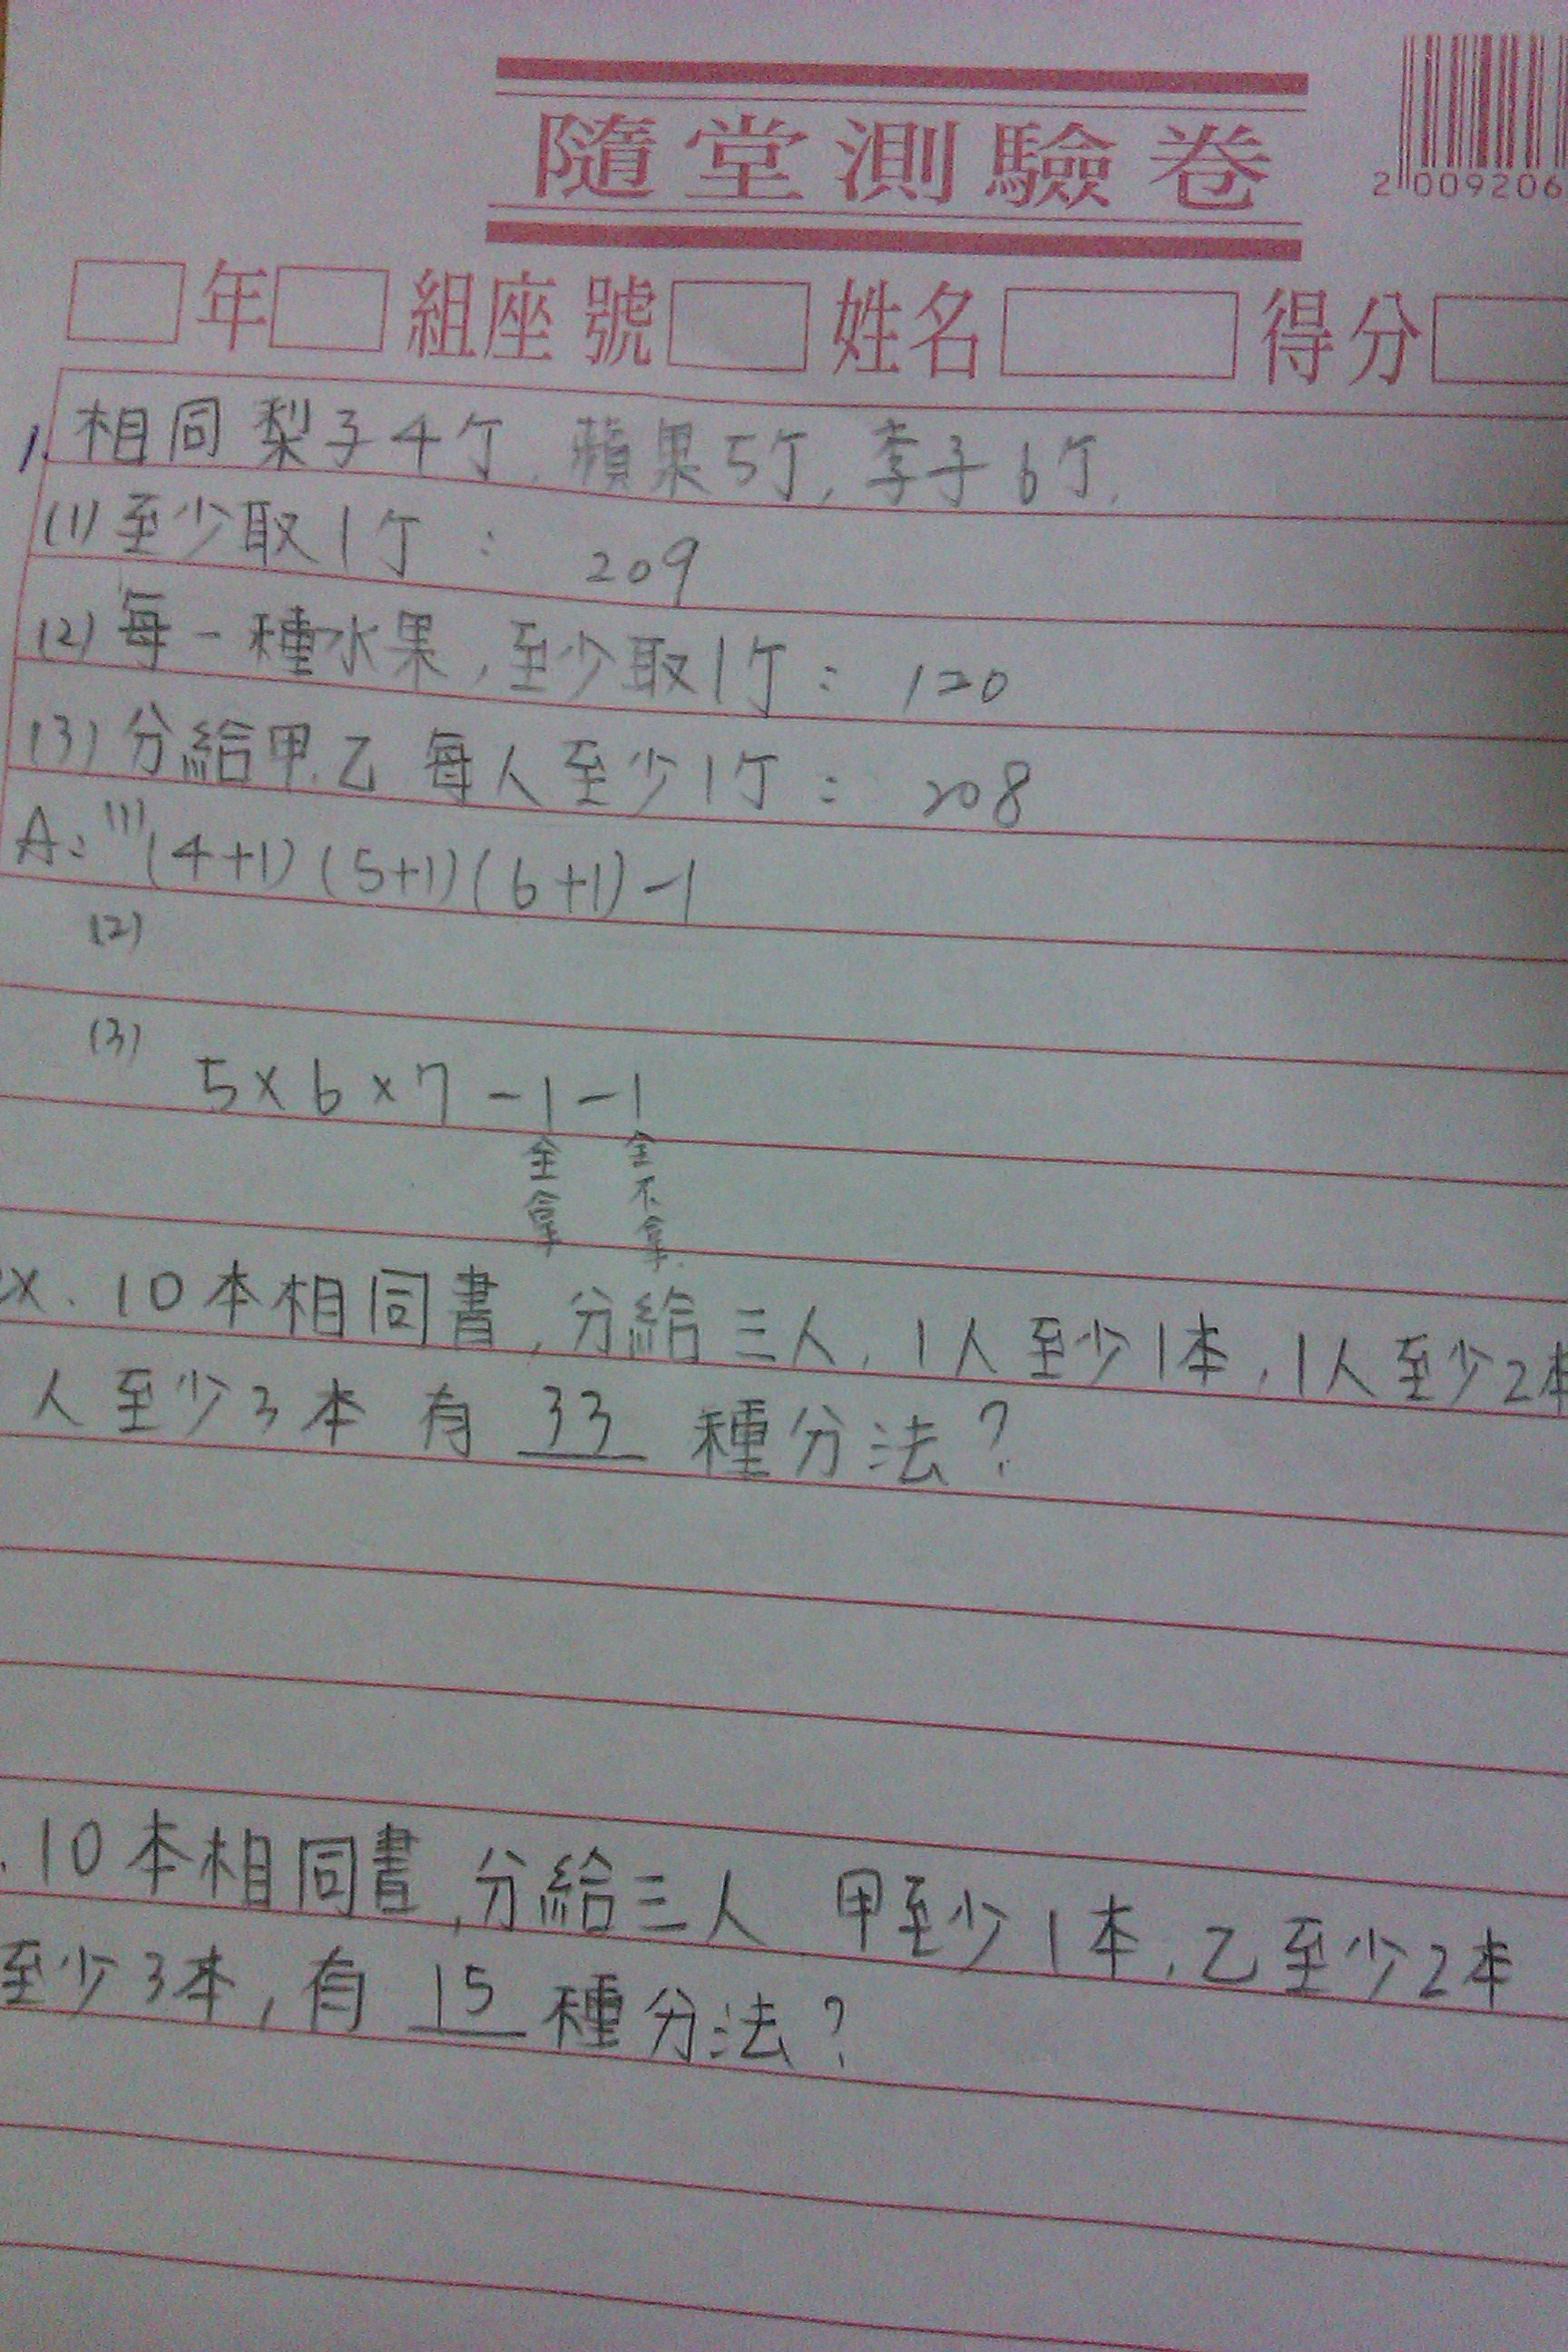 隨堂測驗卷
2 009206
年 組座號 姓名 得分
1. 相同梨子4个, 蘋果5个, 李子6个,
(1) 至少取1个: 209
(2) 每一種水果, 至少取1个: 120
(3) 分給甲.乙 每人至少1个: 208
A: (1) (4+1)(5+1)(6+1)-1
(2)
(3)
5×6×7-1-1
全拿 全不拿.
ex. 10本相同書, 分給三人, 1人至少1本, 1人至少2本
人至少3本 有 33 種分法?
. 10本相同書, 分給三人 甲至少1本, 乙至少2本
至少3本, 有 15 種分法?